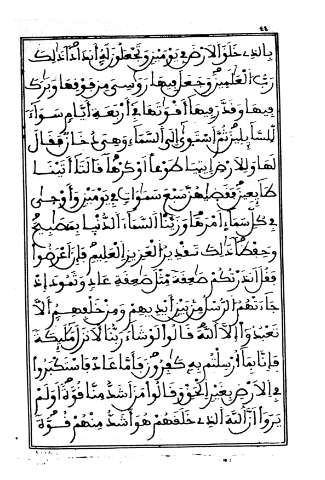 بالذي خلق الارض في يومين وتجعلون له أندادا ذلك
رب العلمين وجعل فيها روسي من فوقها وبرك
فيها وقدر فيها أقوتها في أربعة أيام سواء
للسايلين ثم استوى إلى السماء وهي دخان فقال
لها وللارض ايتيا طوعا أو كرها قالتا أتينا
طايعين فقضيهن سبع سموات في يومين وأوحى
في كل سماء أمرها وزينا السماء الدنيا بمصبيح
وحفظا ذلك تقدير العزيز العليم فإن أعرضوا
فقل أنذرتكم صعقة مثل صعقة عاد وثمود إذ
جاءتهم الرسل من بين أيديهم ومن خلفهم ألا
تعبدوا إلا الله قالوا لو شاء ربنا لانزل مليكة
فإنا بما أرسلتم به كفرون فأما عاد فاستكبروا
في الارض بغير الحق وقالوا من أشد منا قوة أولم
يروا أن الله الذي خلقهم هو أشد منهم قوة